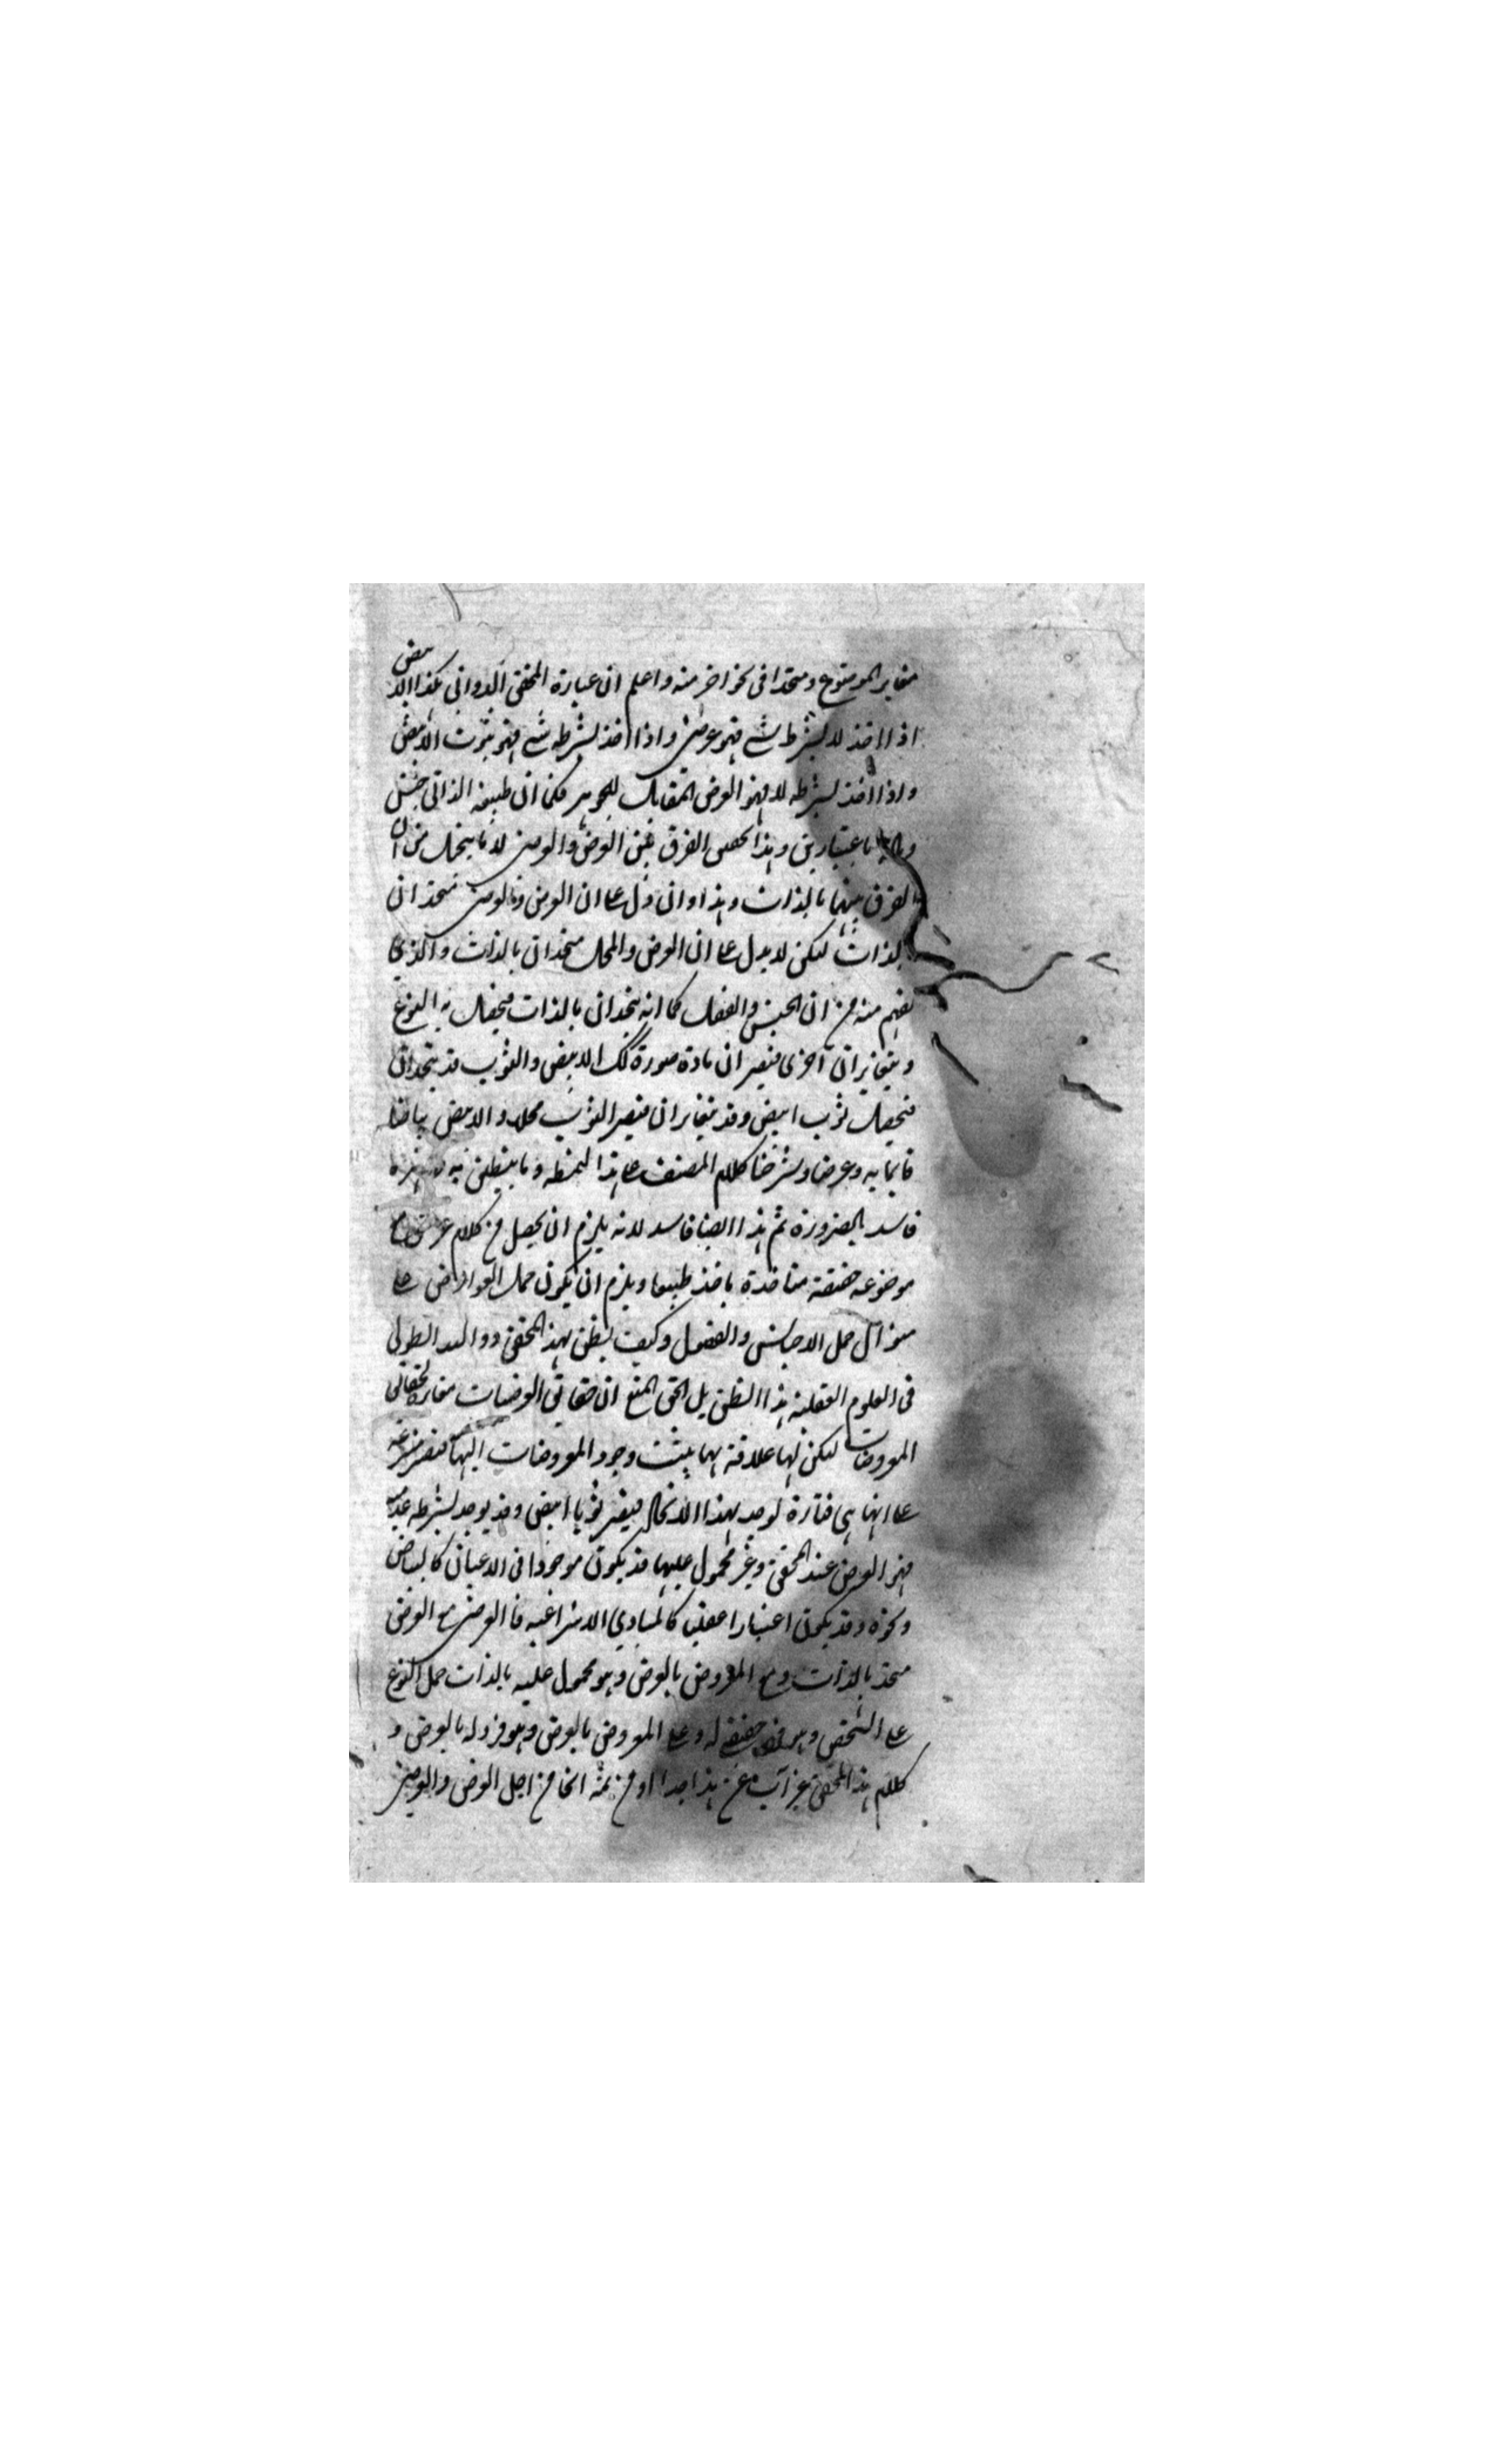 مغاير الموضوع ومتحدا فى نحو اخر منه واعلم ان عبارة المحقق الدوانى هكذا الابيض
اذا اخذ لا بشرط شئ فهو عرضى واذا اخذ بشرط شئ فهو ثوب الابيض
واذا اخذ بشرط لا فهو العرض المقابل للجوهر فكما ان طبيعة الذاتى جنس
باعتبارين وهذا الفرق بين العرض والعرضى لا ما يتخيل من ان
الفرق بينهما بالذات وهذا وان دل على ان العرض والعرضى متحدان
بالذات لكن لا يدل على ان العرض والمحل متحدان بالذات والذى
يفهم منه من ان الجنس والفصل كما انه يتحدان بالذات فيحصل به النوع
ويتغايران اخرى فيصيران مادة صورة كك الابيض والثوب قد يتحدان
فيحصل ثوب ابيض وقد يتغايران فيصير الثوب محلا والابيض بياضا
قايما به وعرضا وشرحنا كلام المصنف على هذا النمط وما
فاسد بالضرورة ثم هذا ايضا فاسد لانه يلزم ان يحصل من كلام عرض مع
موضوعه حقيقة متاحدة ويلزم ان يكون حمل العوارض على
منوال حمل الاجناس والفصول وكيف يظن بهذا المحقق ذو اليد الطولى
فى العلوم العقلية هذا الظن بل الحق ان حقايق العرضيات مغايرة لحقايق
المعروضات لكن لها علاقة بها ينسب وجود المعروضات اليها
على انها هى فتارة يوجد بهذا الاتحاد فيصير ثوبا ابيض وقد يوجد بشرط
فهو العرض عند المحقق وغير محمول عليها قد يكون موجودا فى الاعيان كالبياض
ونحوه وقد يكون اعتبارا عقليا كالمبادى الانتزاعية فالعرض مع العرضى
متحد بالذات ومع المعروض بالعرض وهو محمول عليه بالذات حمل النوع
على الشخص وهو حقيقة له وعلى المعروض بالعرض وهو فرد له بالعرض و
كلام هذا المحقق غير آب عن هذا جدا ومن ثمه من اجل العرض والعرضى